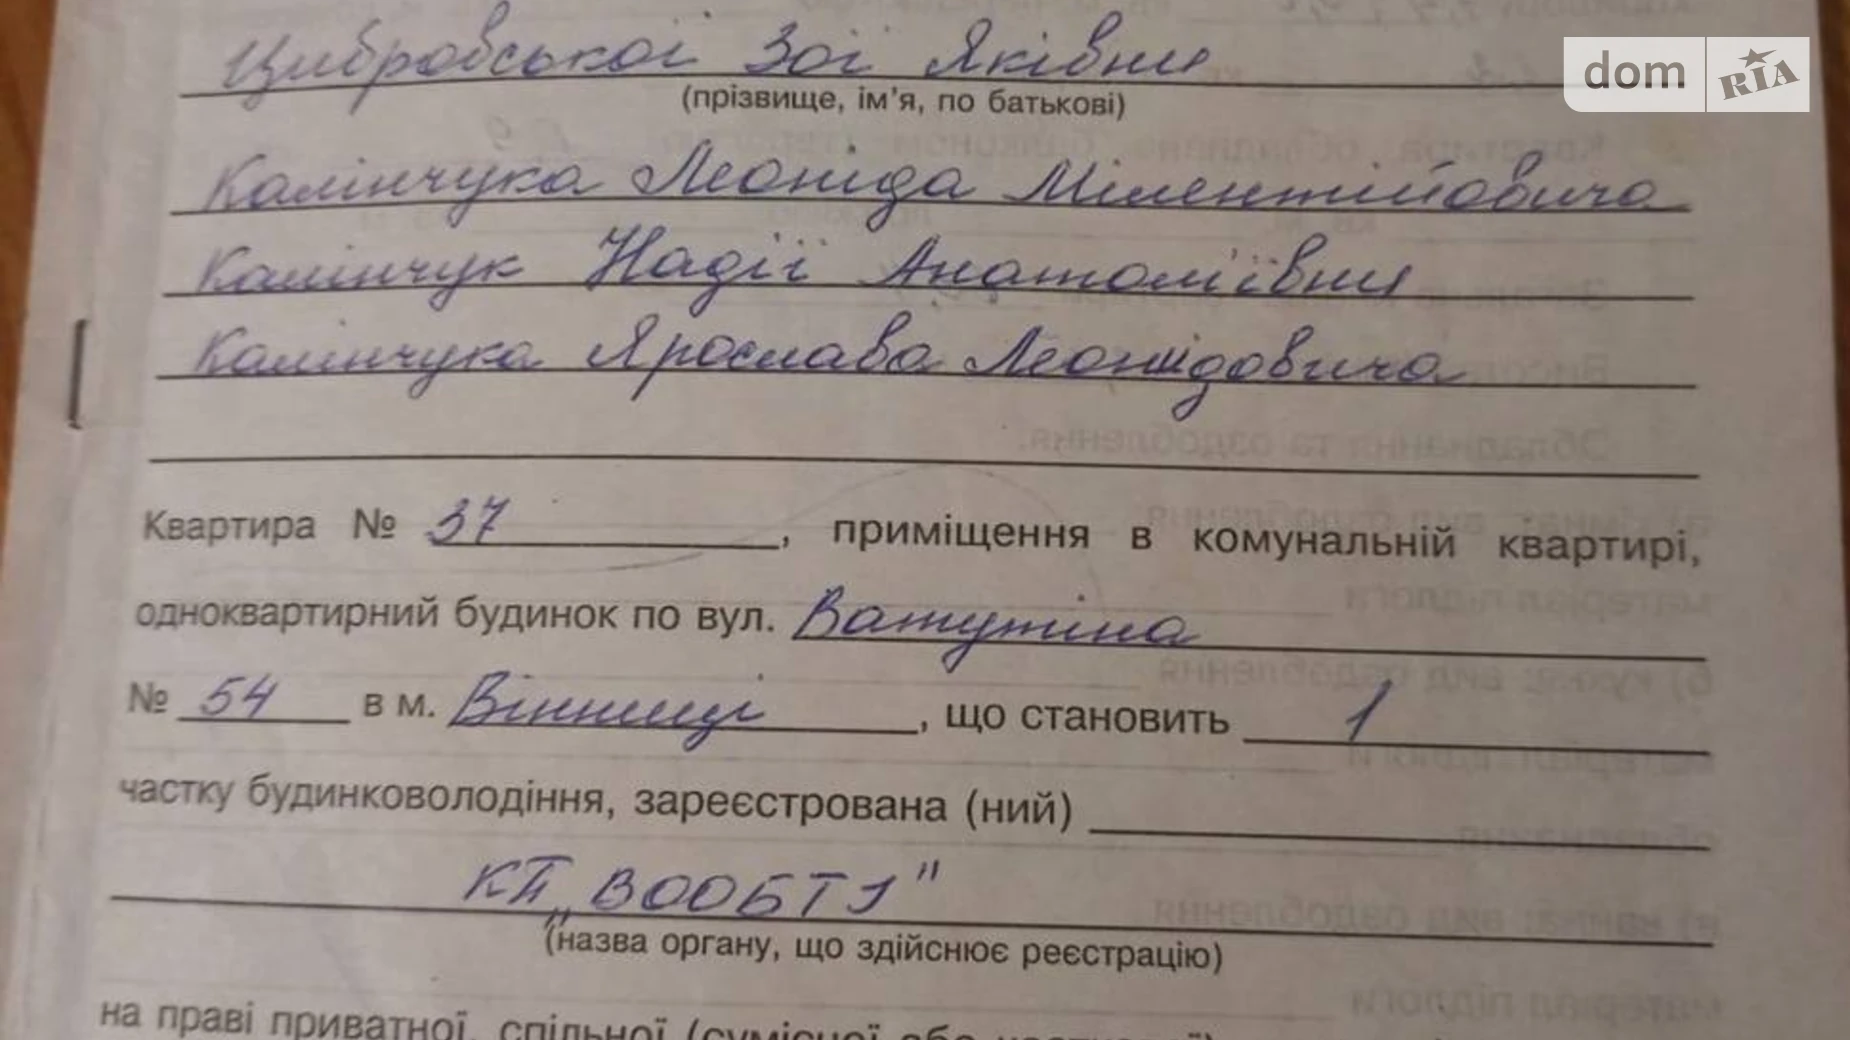 Цибровської Зої Яківни
(прізвище, ім'я, по батькові)
Калінчука Леоніда Мілентійовича
Калінчук Надії Анатоліївни
Калінчука Ярослава Леонідовича
Квартира № 37, приміщення в комунальній квартирі,
одноквартирний будинок по вул. Ватутіна
№ 54 в м. Вінниці, що становить 1
частку будинковолодіння, зареєстрована (ний)
КП „ВООБТІ"
(назва органу, що здійснює реєстрацію)
на праві приватної, спільної (сумісної або
dom RIA